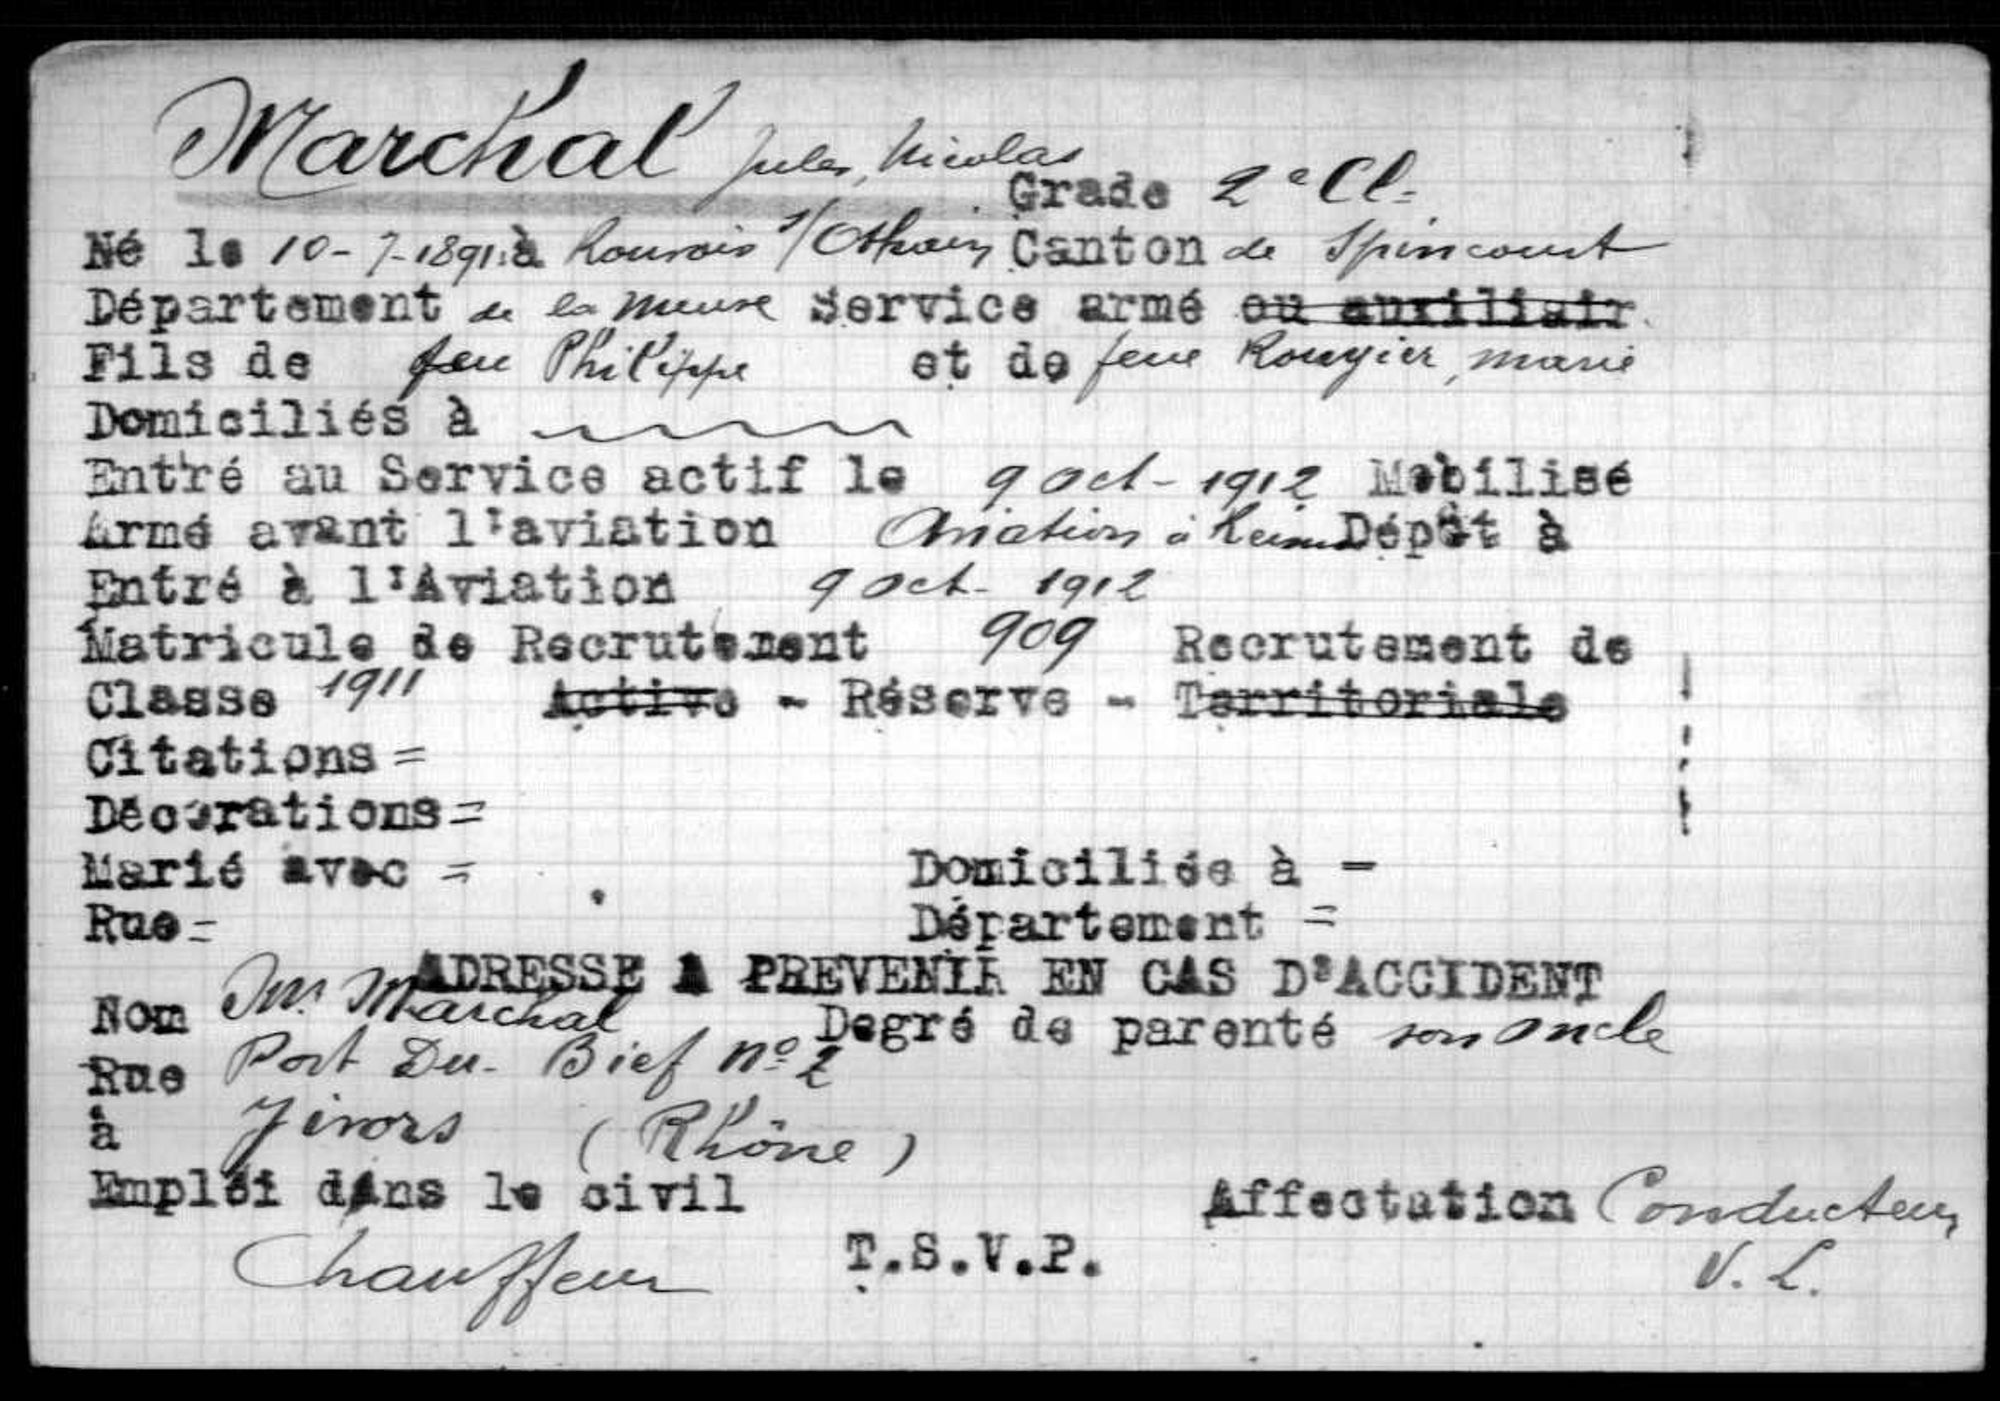 Marchal Jules, Nicolas
Grade 2e Cl.
Né le 10-7-1891 à Rouvrois s/Othain Canton de Spincourt
Département de la Meuse Service armé ou auxiliair
Fils de feu Philippe et de feue Rougier, marie
Domiciliés à
Entré au Service actif le 9 oct- 1912 Mobilisé
Armé avant l'aviation Aviation à Reims Dépôt à
Entré à l'Aviation 9 oct- 1912
Matricule de Recrutement 909 Recrutement de
Classe 1911 Active - Réserve - Territoriale
Citations =
Décorations =
Marié avec = Domiciliée à -
Rue = Département =
ADRESSE A PREVENIR EN CAS D'ACCIDENT
Nom Mr. Marchal Degré de parenté son oncle
Rue Port Du- Bief No 2
à Jivors (Rhône)
Emploi dans le civil Affectation Conducteur
Chauffeur T.S.V.P. V. L.